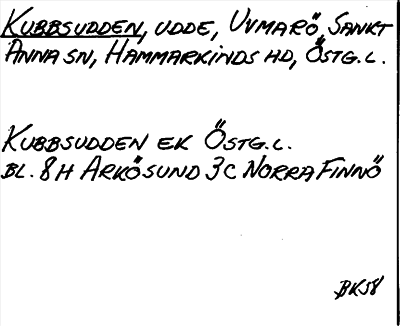 KUBBSUDDEN, UDDE, UVMARÖ, SANKT
ANNA SN, HAMMARKINDS HD, ÖSTG. L.
KUBBSUDDEN EK ÖSTG. L.
BL. 8 H ARKÖSUND 3 C NORRA FINNÖ
BK58